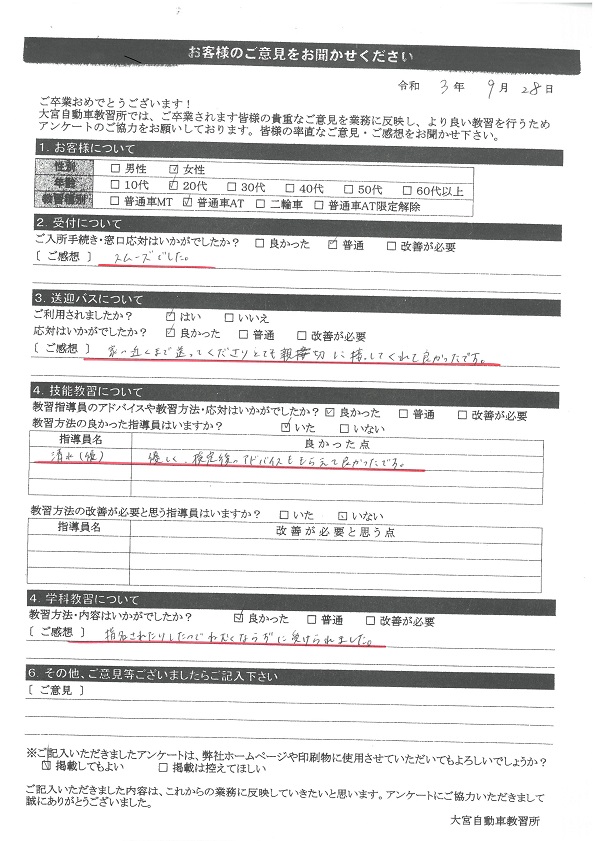 お客様のご意見をお聞かせください
令和 3 年 9 月 28 日
ご卒業おめでとうございます！
大宮自動車教習所では、ご卒業されます皆様の貴重なご意見を業務に反映し、より良い教習を行うため
アンケートのご協力をお願いしております。皆様の率直なご意見・ご感想をお聞かせ下さい。
1. お客様について
性別 □ 男性 ☑ 女性
年齢 □ 10代 ☑ 20代 □ 30代 □ 40代 □ 50代 □ 60代以上
教習種別 □ 普通車MT ☑ 普通車AT □ 二輪車 □ 普通車AT限定解除
2. 受付について
ご入所手続き・窓口応対はいかがでしたか？ □ 良かった ☑ 普通 □ 改善が必要
［ ご感想 ］ スムーズでした。
3. 送迎バスについて
ご利用されましたか？ ☑ はい □ いいえ
応対はいかがでしたか？ ☑ 良かった □ 普通 □ 改善が必要
［ ご感想 ］ 家の近くまで送ってくださりとても親切に接してくれて良かったです。
4. 技能教習について
教習指導員のアドバイスや教習方法・応対はいかがでしたか？ ☑ 良かった □ 普通 □ 改善が必要
教習方法の良かった指導員はいますか？ ☑ いた □ いない
指導員名 良かった点
清水 優しく、検定後のアドバイスももらえて良かったです。
教習方法の改善が必要と思う指導員はいますか？ □ いた ☑ いない
指導員名 改善が必要と思う点
4. 学科教習について
教習方法・内容はいかがでしたか？ ☑ 良かった □ 普通 □ 改善が必要
［ ご感想 ］ 指名されたりしたのでねむくならずに受けられました。
6. その他、ご意見等ございましたらご記入下さい
［ ご意見 ］
※ご記入いただきましたアンケートは、弊社ホームページや印刷物に使用させていただいてもよろしいでしょうか？
☑ 掲載してもよい □ 掲載は控えてほしい
ご記入いただきました内容は、これからの業務に反映していきたいと思います。アンケートにご協力いただきまして
誠にありがとうございました。
大宮自動車教習所